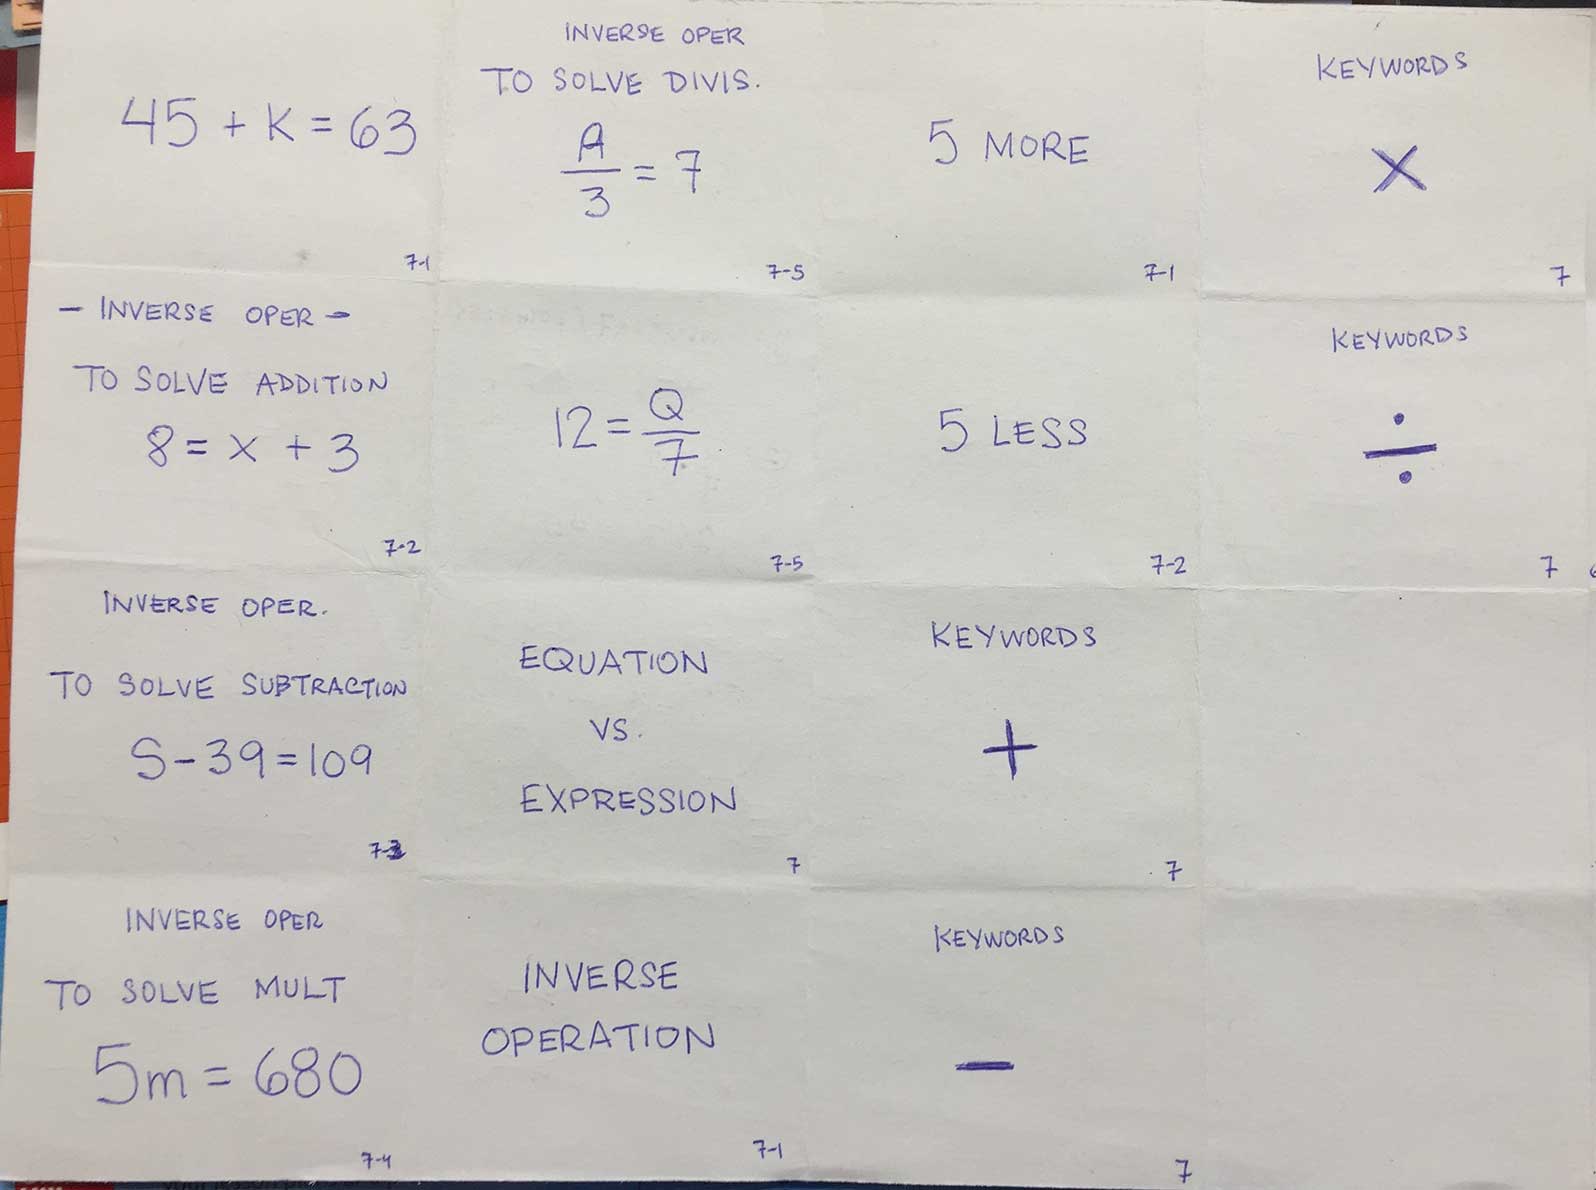 45 + K = 63
7-1
INVERSE OPER
TO SOLVE DIVIS.
A
3
= 7
7-5
5 MORE
7-1
KEYWORDS
×
7
- INVERSE OPER -
TO SOLVE ADDITION
8 = X + 3
7-2
12 =
Q
7
7-5
5 LESS
7-2
KEYWORDS
÷
7
INVERSE OPER.
TO SOLVE SUBTRACTION
S - 39 = 109
7-3
EQUATION
VS.
EXPRESSION
7
KEYWORDS
+
7
INVERSE OPER
TO SOLVE MULT
5m = 680
7-4
INVERSE
OPERATION
7-1
KEYWORDS
-
7